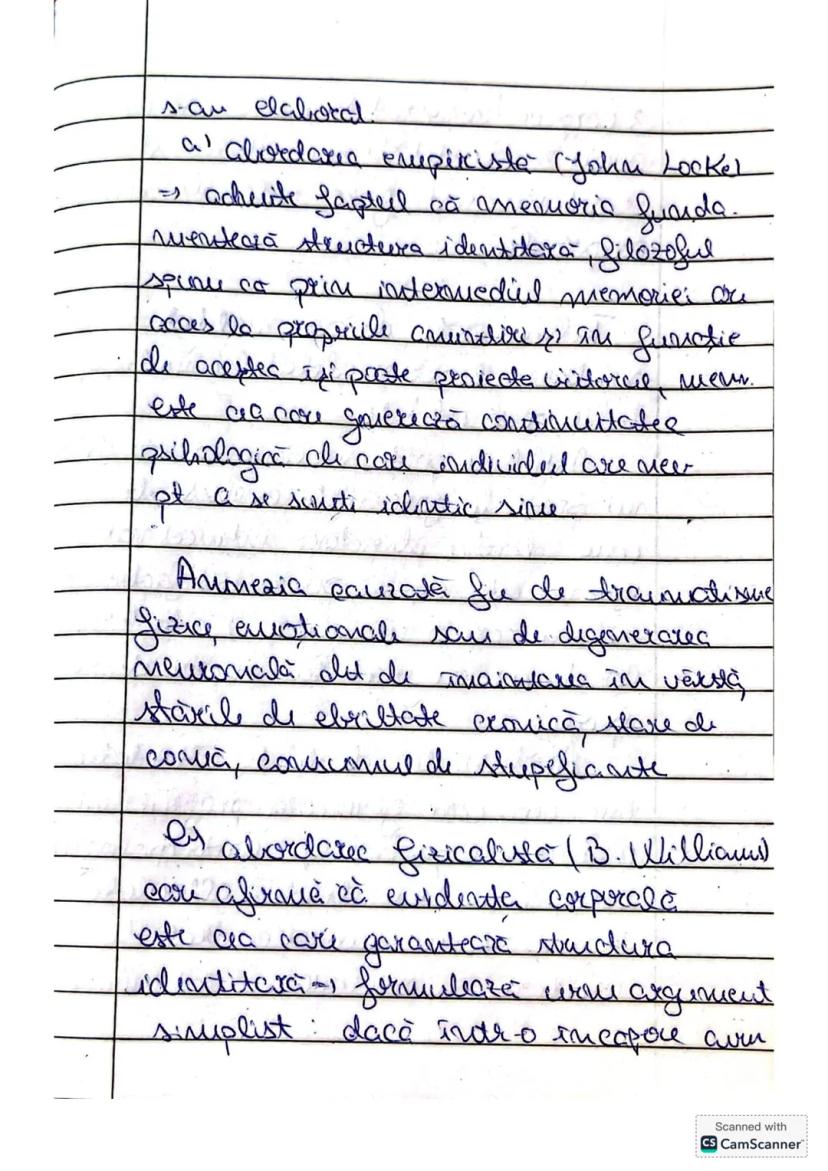 s-au elaborat.
a) abordarea empiristă (John Locke)
=> admite faptul că memoria funda-
mentează structura identitară, filozoful
spune că prin intermediul memoriei are
acces la propriile amintiri și în funcție
de acestea își poate proiecta viitorul, mem.
este cea care generează continuitatea
psihologică de care individul are nev
pt a se simți identic sine
Amnezia cauzată fie de traumatisme
fizice, emoționale sau de degenerarea
neuronală dat de înaintarea în vârstă,
stările de ebrietate cronică, stare de
comă, consumul de stupefiante
b) abordarea fizicalistă (B. Williams)
care afirmă că evidența corporală
este cea care garantează structura
identitară => formulează unu argument
simplist : dacă într-o încăpere avem
Scanned with
CS CamScanner